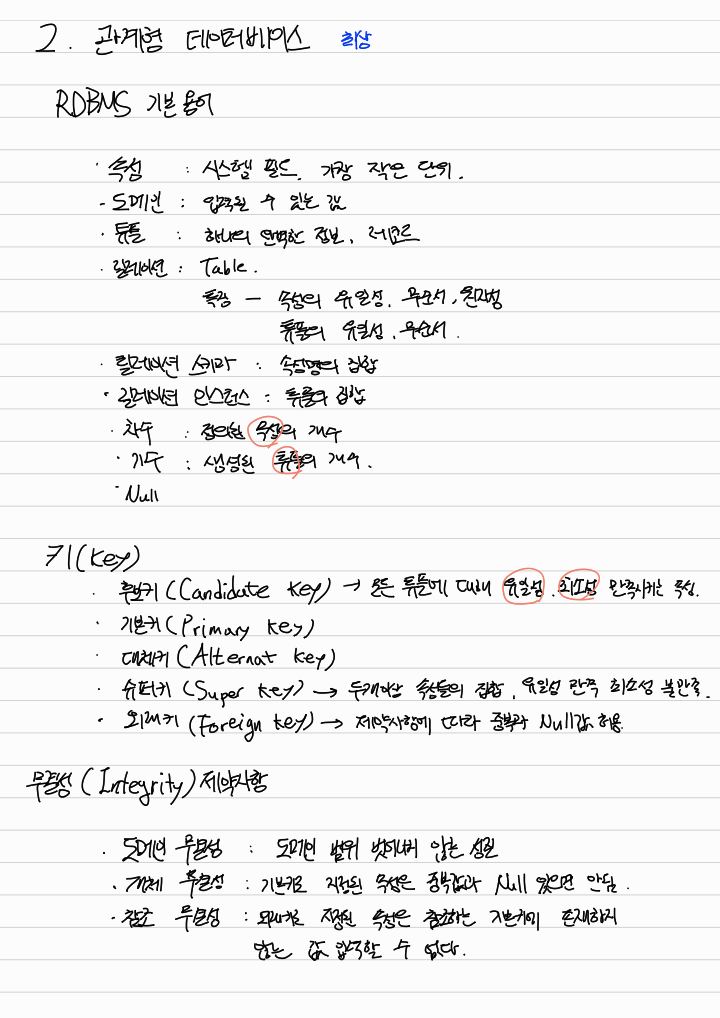 2. 관계형 데이터베이스 최상
RDBMS 기본 용어
· 속성 : 시스템 필드, 가장 작은 단위.
· 도메인 : 입력될 수 있는 값
· 튜플 : 하나의 완벽한 정보, 레코드
· 릴레이션 : Table.
특징 - 속성의 유일성, 무순서, 원자성
튜플의 유일성, 무순서.
· 릴레이션 스키마 : 속성명의 집합
· 릴레이션 인스턴스 : 튜플의 집합
· 차수 : 정의한 속성의 개수
· 기수 : 생성된 튜플의 개수.
· Null
키(Key)
· 후보키 (Candidate Key) → 모든 튜플에 대해 유일성, 최소성 만족시키는 속성.
· 기본키 (Primary Key)
· 대체키 (Alternat Key)
· 슈퍼키 (Super Key) → 두개이상 속성들의 집합, 유일성 만족 최소성 불만족.
· 외래키 (Foreign Key) → 제약사항에 따라 중복과 Null값 허용.
무결성 (Integrity) 제약사항
· 도메인 무결성 : 도메인 범위 벗어나지 않는 성질
· 개체 무결성 : 기본키로 지정된 속성은 중복값과 Null 있으면 안됨.
· 참조 무결성 : 외래키로 지정된 속성은 참조하는 기본키에 존재하지
않는 값 입력할 수 없다.